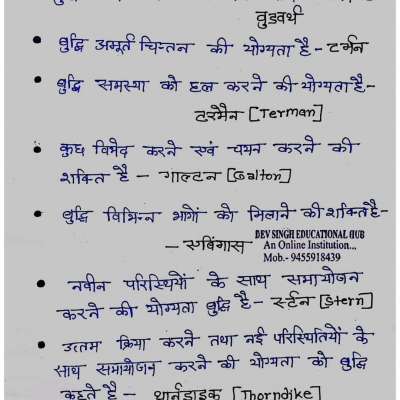 वुडवर्थ
• बुद्धि अमूर्त चिन्तन की योग्यता है - टर्मन
• बुद्धि समस्या को हल करने की योग्यता है -
टरमैन [Terman]
• कुछ विभेद करने एवं चयन करने की
शक्ति है - गाल्टन [Galton]
• बुद्धि विभिन्न भागों को मिलाने की शक्ति है -
- एबिंगास
DEV SINGH EDUCATIONAL HUB
An Online Institution...
Mob.- 9455918439
• नवीन परिस्थियों के साथ समायोजन
करने की योग्यता बुद्धि है - स्टर्न [Stern]
• उत्तम क्रिया करने तथा नई परिस्थितियों के
साथ समायोजन करने की योग्यता को बुद्धि
कहते है - थार्नडाइक [Thorndike]